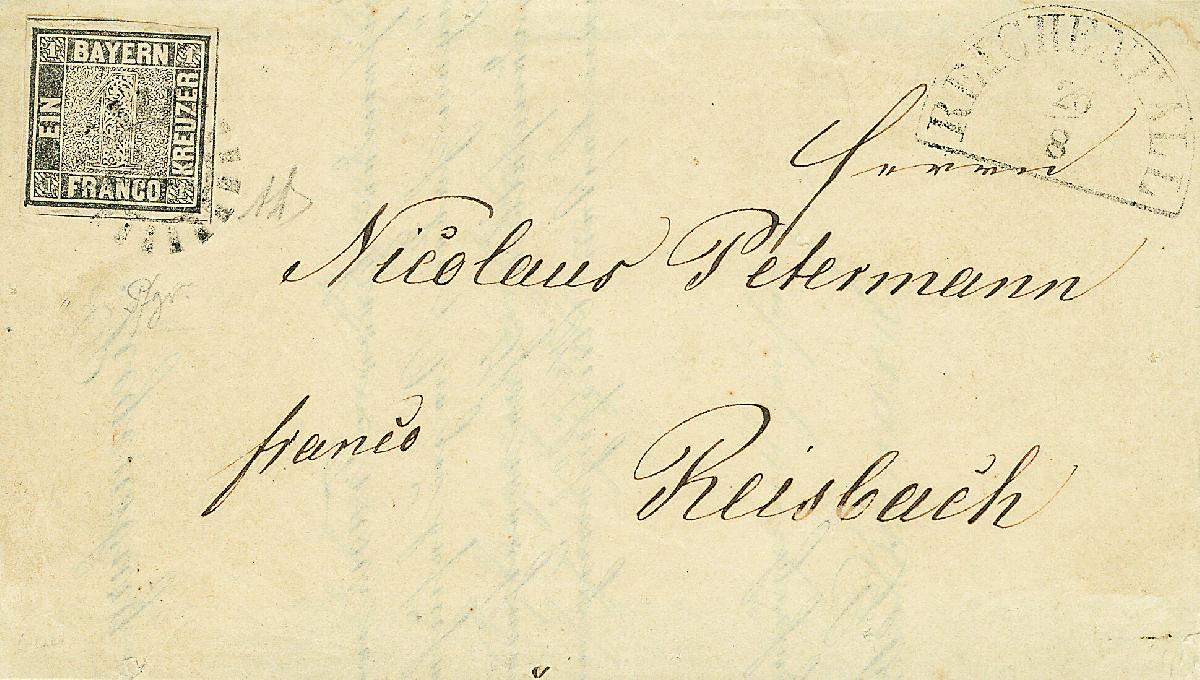 1 BAYERN 1
EIN
KREUZER
1 FRANCO 1
REICHENHALL
20
8
Herrn
Nicolaus Petermann
Pfr.
franco
Reisbach